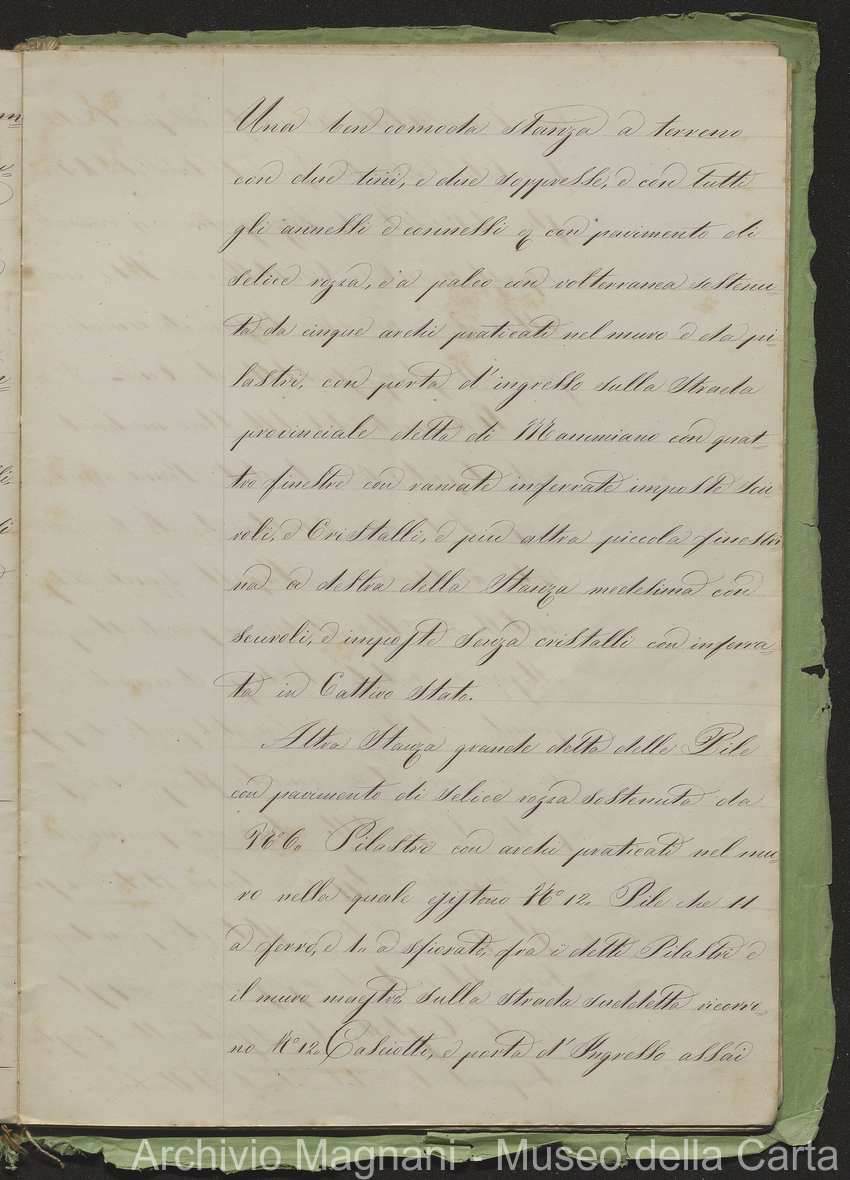 Una ben comoda stanza a terreno
con due tini, e due soppresse, e con tutti
gli annessi e connessi con pavimento di
selice rozza, e a palco con volterranea sostenu=
ta da cinque archi praticati nel muro e da pi=
lastri, con porta d'ingresso sulla Strada
provinciale detta di Mammiano con quat=
tro finestre con ramate inferrate imposte scu
roli, e Cristalli, e più altra piccola finestri=
na a destra della Stanza medesima con
scuroli, e imposte senza cristalli con inferra=
ta in Cattivo Stato.
Altra Stanza grande detta delle Pile
con pavimento di selice rozza sostenuta da
N.o 6. Pilastri con archi praticati nel mu=
ro nella quale esistono N.o 12. Pile che 11
a ferro, e 1. a sfiorato, fra i detti Pilastri e
il muro maestro, sulla strada suddetta ricorro=
no N.o 12. Casciotti, e porta d'Ingresso assai
Archivio Magnani - Museo della Carta